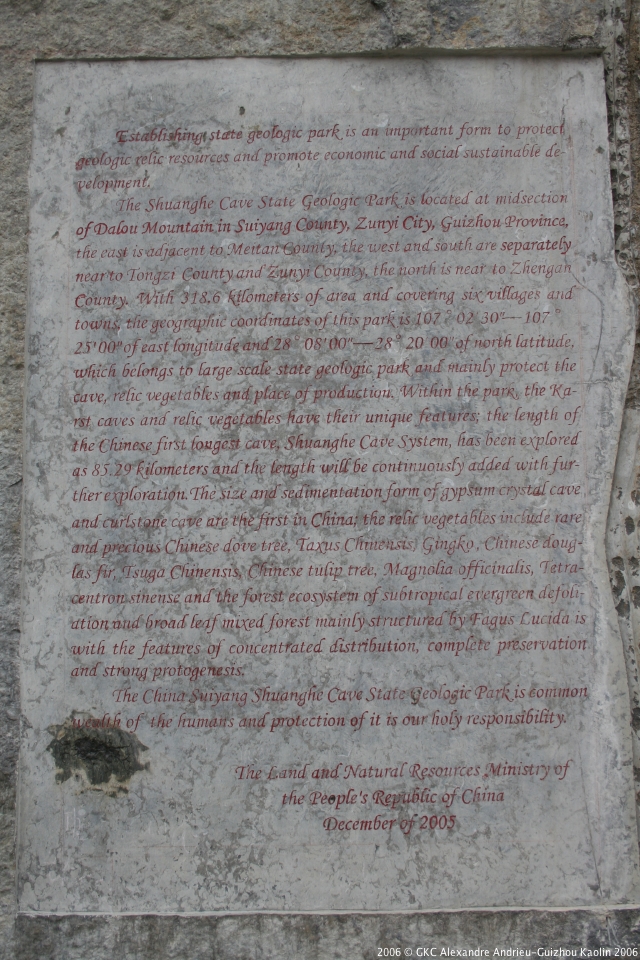 Establishing state geologic park is an important form to protect
geologic relic resources and promote economic and social sustainable de-
velopment.
The Shuanghe Cave State Geologic Park is located at midsection
of Dalou Mountain in Suiyang County, Zunyi City, Guizhou Province,
the east is adjacent to Meitan County, the west and south are separately
near to Tongzi County and Zunyi County, the north is near to Zhengan
County. With 318.6 kilometers of area and covering six villages and
towns, the geographic coordinates of this park is 107° 02′ 30″—107°
25′ 00″ of east longitude and 28° 08′ 00″—28° 20 00″ of north latitude,
which belongs to large scale state geologic park and mainly protect the
cave, relic vegetables and place of production. Within the park, the Ka-
rst caves and relic vegetables have their unique features; the length of
the Chinese first longest cave, Shuanghe Cave System, has been explored
as 85.29 kilometers and the length will be continuously added with fur-
ther exploration. The size and sedimentation form of gypsum crystal cave
and curlstone cave are the first in China; the relic vegetables include rare
and precious Chinese dove tree, Taxus Chinensis) Gingko, Chinese doug-
las fir, Tsuga Chinensis, Chinese tulip tree, Magnolia officinalis, Tetra-
centron sinense and the forest ecosystem of subtropical evergreen defoli-
ation and broad leaf mixed forest mainly structured by Fagus Lucida is
with the features of concentrated distribution, complete preservation
and strong protogenesis.
The China Suiyang Shuanghe Cave State Geologic Park is common
wealth of the humans and protection of it is our holy responsibility.
The Land and Natural Resources Ministry of
the People's Republic of China
December of 2005
2006 © GKC Alexandre Andrieu-Guizhou Kaolin 2006